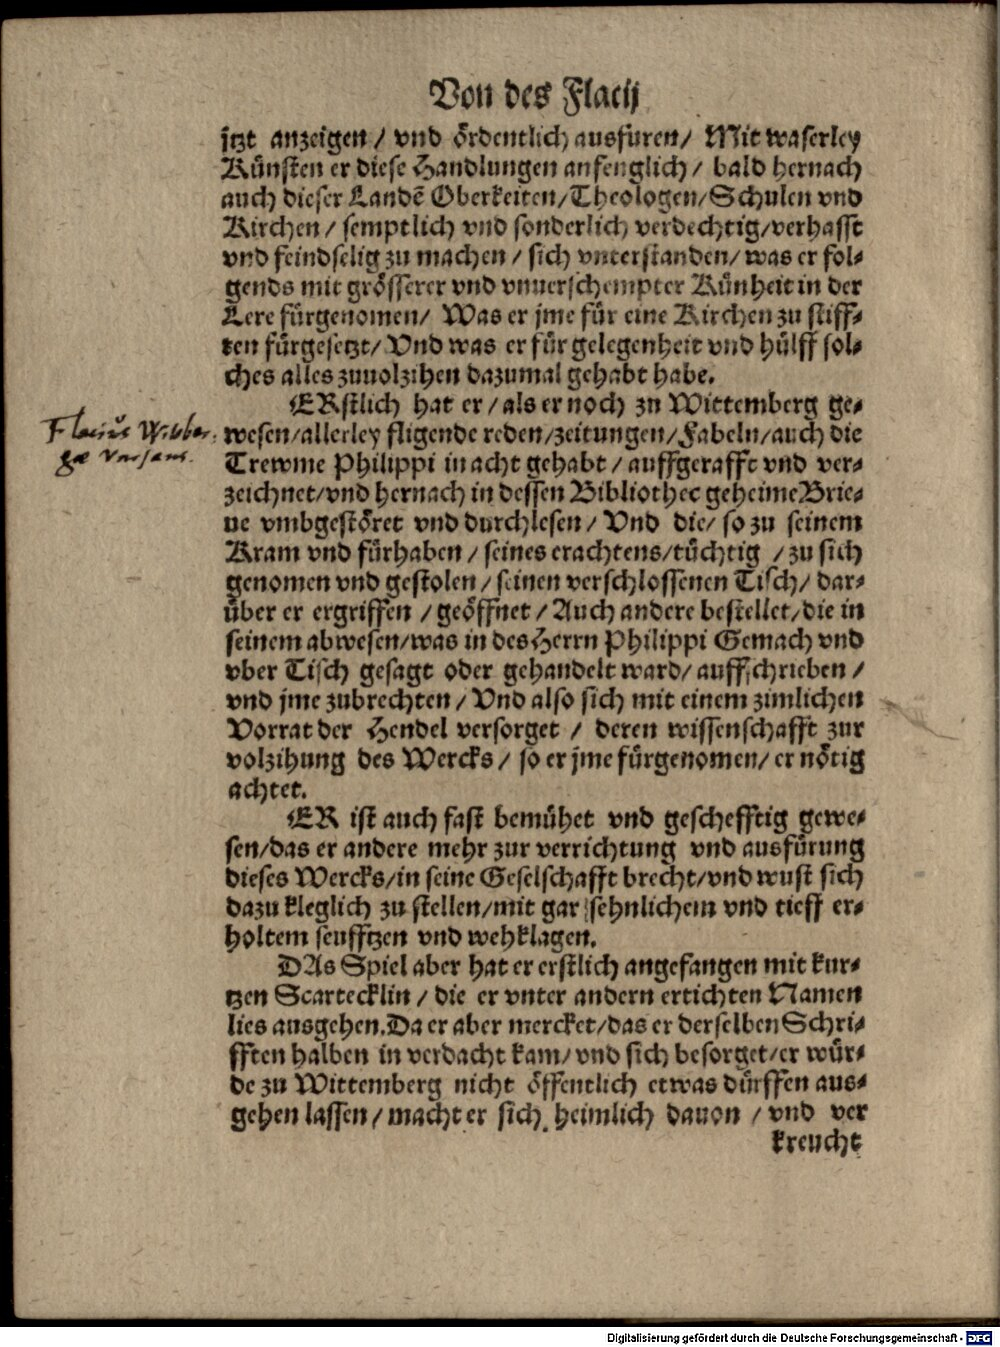 Von des Flacij
jtzt anzeigen / vnd ördentlich ausfüren / Mit waserley
Künsten er diese Handlungen anfenglich / bald hernach
auch dieser Landē Oberkeiten / Theologen / Schulen vnd
Kirchen / semptlich vnd sonderlich verdechtig / verhasst
vnd feindselig zu machen / sich vnterstanden / was er fol-
gends mit grösserer vnd vnuerschempter Künheit in der
Lere fürgenomen / Was er jme für eine Kirchen zu stiff-
ten fürgesetzt / Vnd was er für gelegenheit vnd hülff sol-
ches alles zuuolzihen dazumal gehabt habe.
ERstlich hat er / als er noch zu Wittemberg ge-
wesen / allerley fligende reden / zeitungen / Fabeln / auch die
Trewme Philippi in acht gehabt / auffgerafft vnd ver-
zeichnet / vnd hernach in dessen Bibliothec geheime Brie-
ue vmbgestöret vnd durchlesen / Vnd die / so zu seinem
Kram vnd fürhaben / seines erachtens / tüchtig / zu sich
genomen vnd gestolen / seinen verschlossenen Tisch / dar-
über er ergriffen / geöffnet / Auch andere bestellet / die in
seinem abwesen / was in des Herrn Philippi Gemach vnd
vber Tisch gesagt oder gehandelt ward / auffschrieben /
vnd jme zubrechten / Vnd also sich mit einem zimlichen
Vorrat der Hendel versorget / deren wissenschafft zur
volzihung des Wercks / so er jme fürgenomen / er nötig
achtet.
ER ist auch fast bemühet vnd geschefftig gewe-
sen / das er andere mehr zur verrichtung vnd ausfürung
dieses Wercks / in seine Geselschafft brecht / vnd wust sich
dazu kleglich zu stellen / mit gar sehnlichem vnd tieff er-
holtem seufftzen vnd wehklagen.
DAs Spiel aber hat er erstlich angefangen mit kur-
tzen Scartecklin / die er vnter andern ertichten Namen
lies ausgehen. Da er aber mercket / das er derselben Schri-
fften halben in verdacht kam / vnd sich besorget / er wür-
de zu Wittemberg nicht öffentlich etwas dürffen aus-
gehen lassen / macht er sich heimlich dauon / vnd ver
kreucht
Flacius Witber
gæ
Digitalisierung gefördert durch die Deutsche Forschungsgemeinschaft - DFG